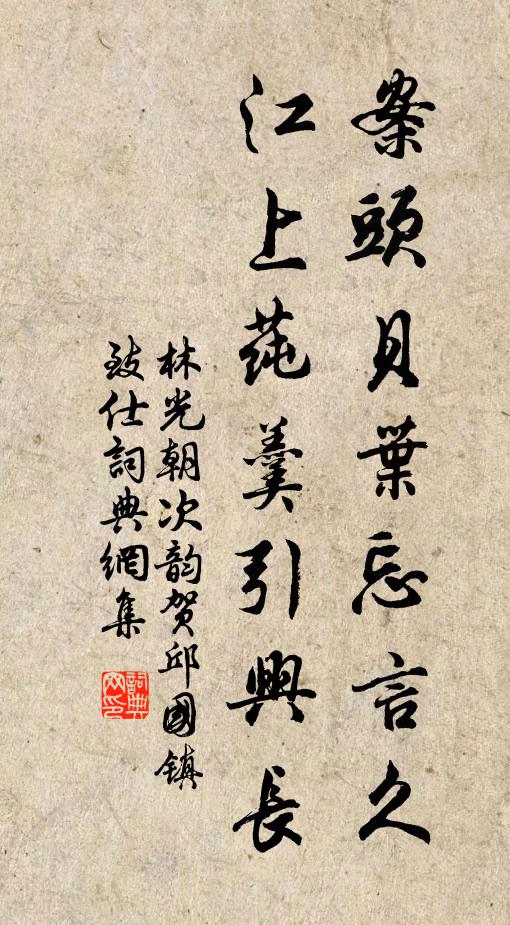 案頭貝葉忘言久
江上莼羹引興長
林光朝次韵贺邱國镇
致仕詞典網集
詞典网印